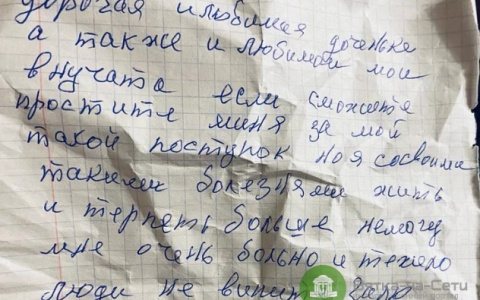 дорогая и любимая доченька
а также и любимой мои
внучата если сможете
простите миня за мой
такой поступок но я сосвоими
такими болезнями жить
и терпеть больше немогу
мне очень больно и тежело
люди не
-Сети